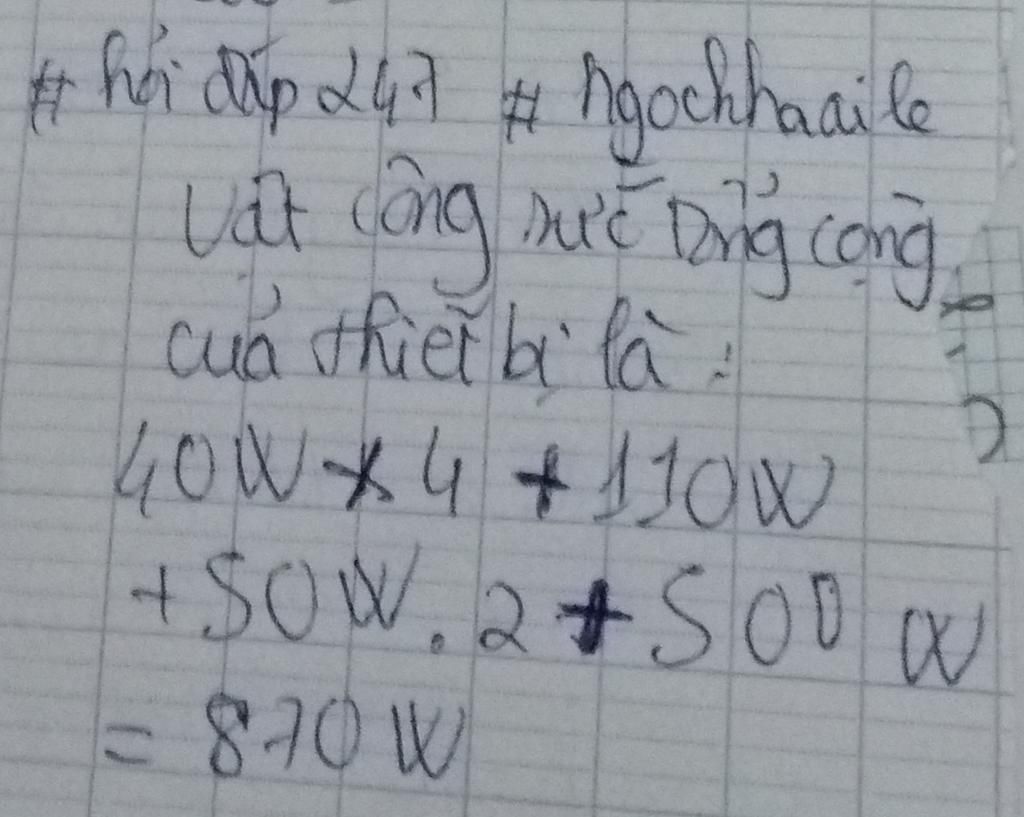 # hỏi đáp 247 # ngochhaaile
Vật công suất tổng cộng
của thiết bị là :
40W x 4 + 110W
+ 50W . 2 + 500 W
= 870 W